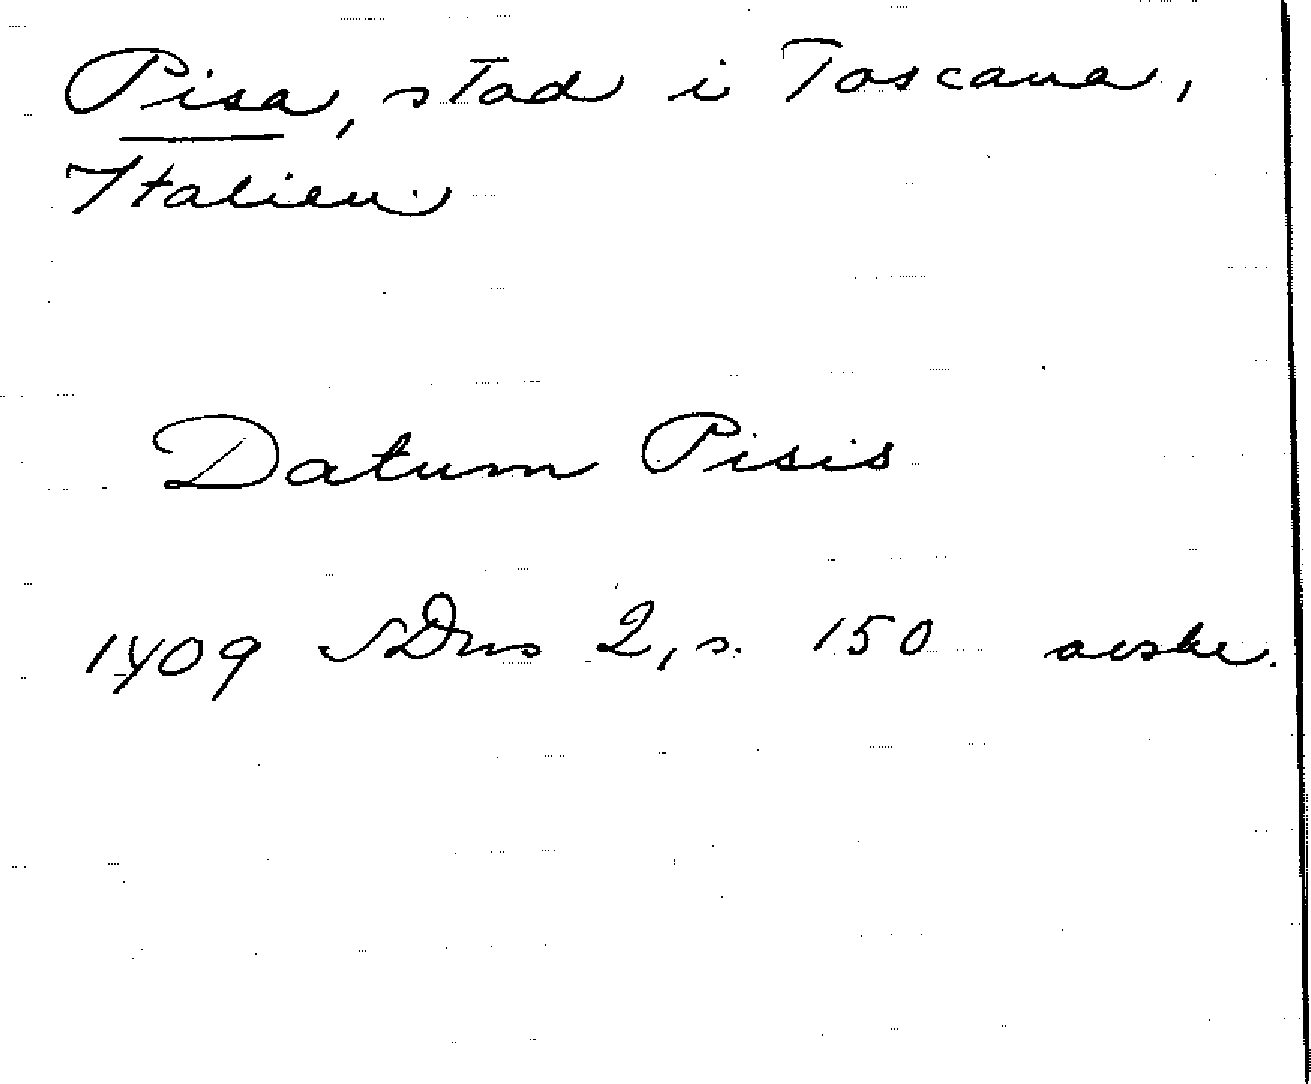 Pisa, stad i Toscana,
Italien.
Datum Pisis
1409 SDns 2, s. 150 avskr.